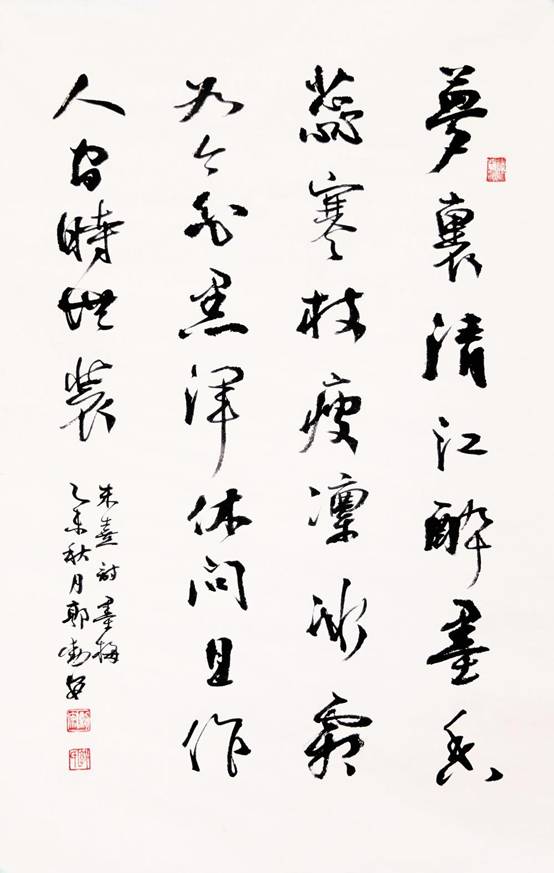 夢裏清江醉墨香
蕊寒枝瘦凜冰霜
如今白黑渾休問且作
人間時世裝
朱熹詩墨梅
乙未秋月郭